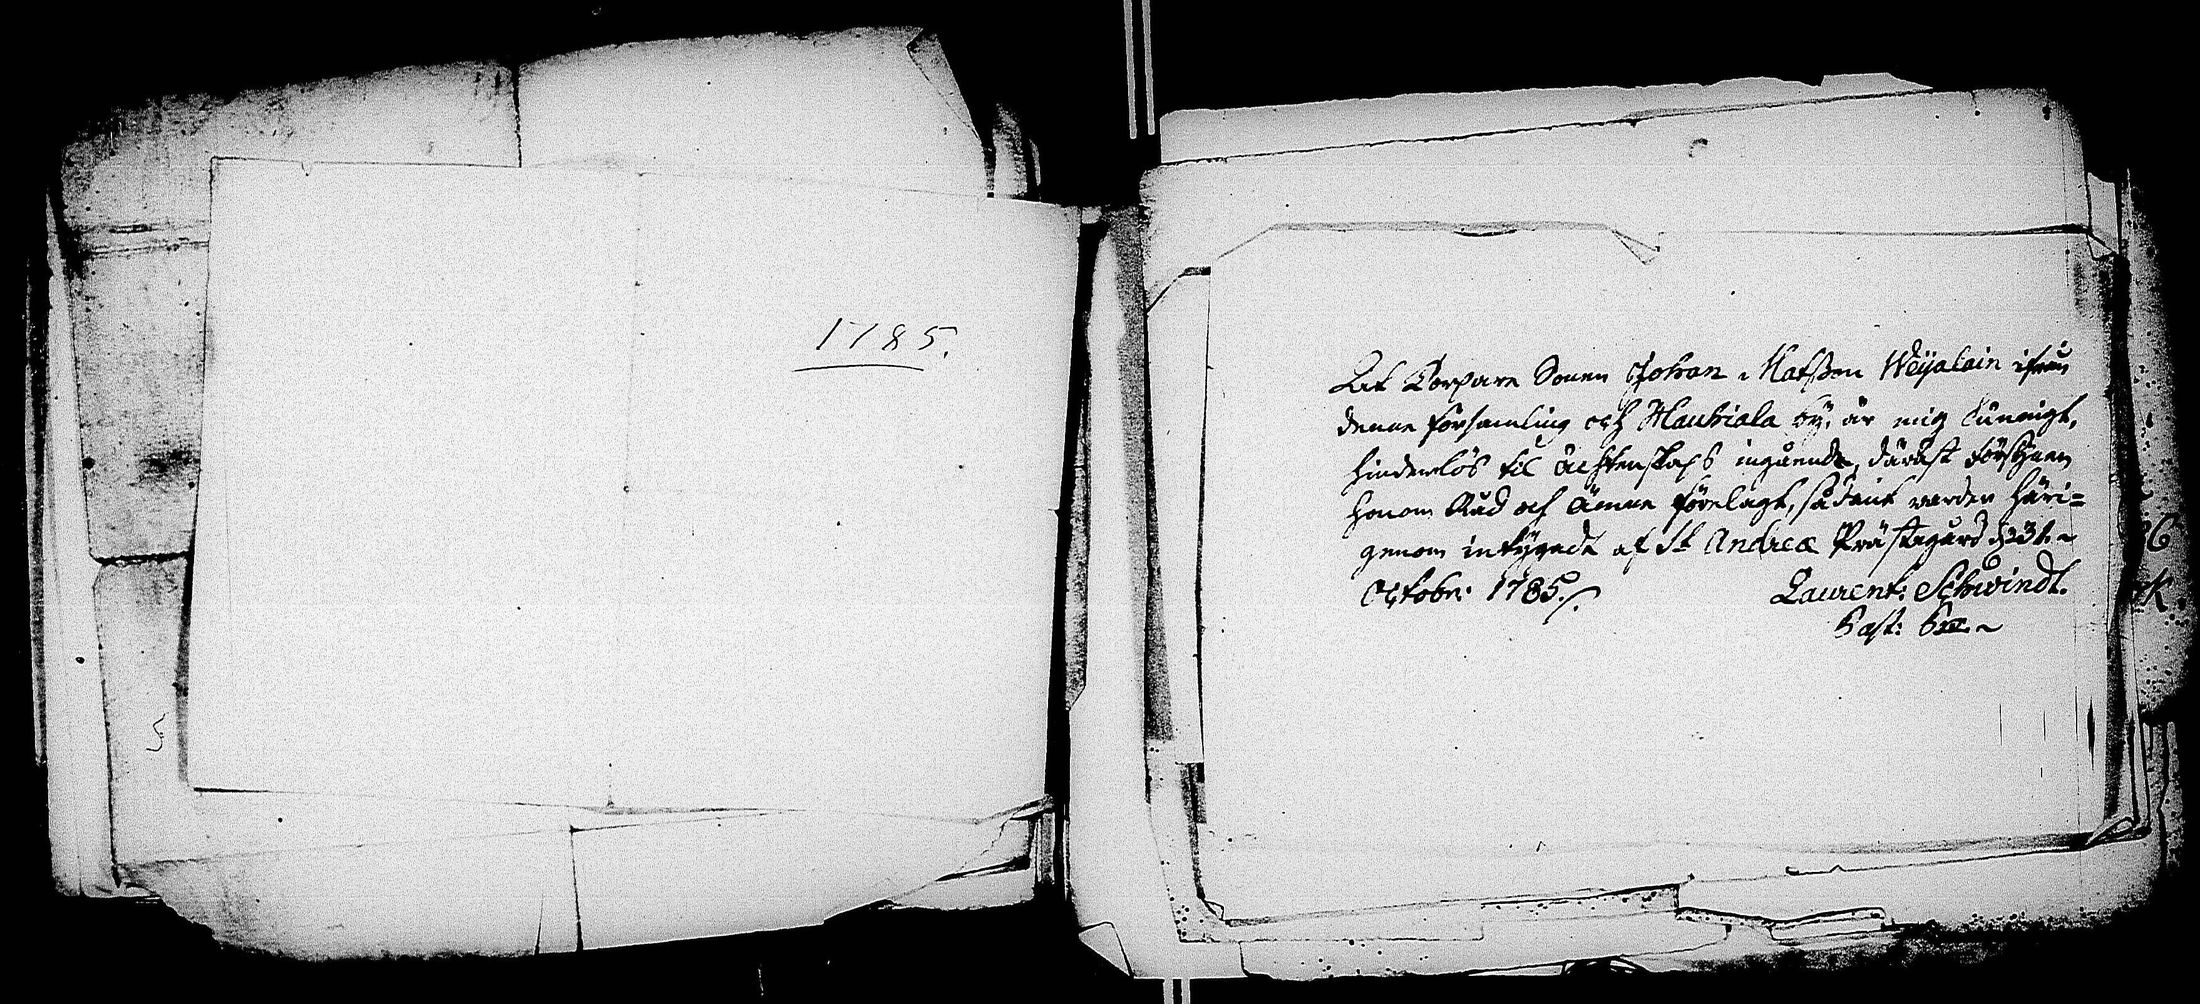 1785.
At Torpare Sonen Johan Matsson Weijalain ifrån
denne församling och Haukiala by, är mig kunnigt,
hinderlös til ächtenskaps ingående, däräst
honom Råd och Ämne förelagt, sådant warder häri=
genom intygadt af St Andreæ Prästegård d 23t
Octobr: 1785.
Laurent: Schwindt.
Past: